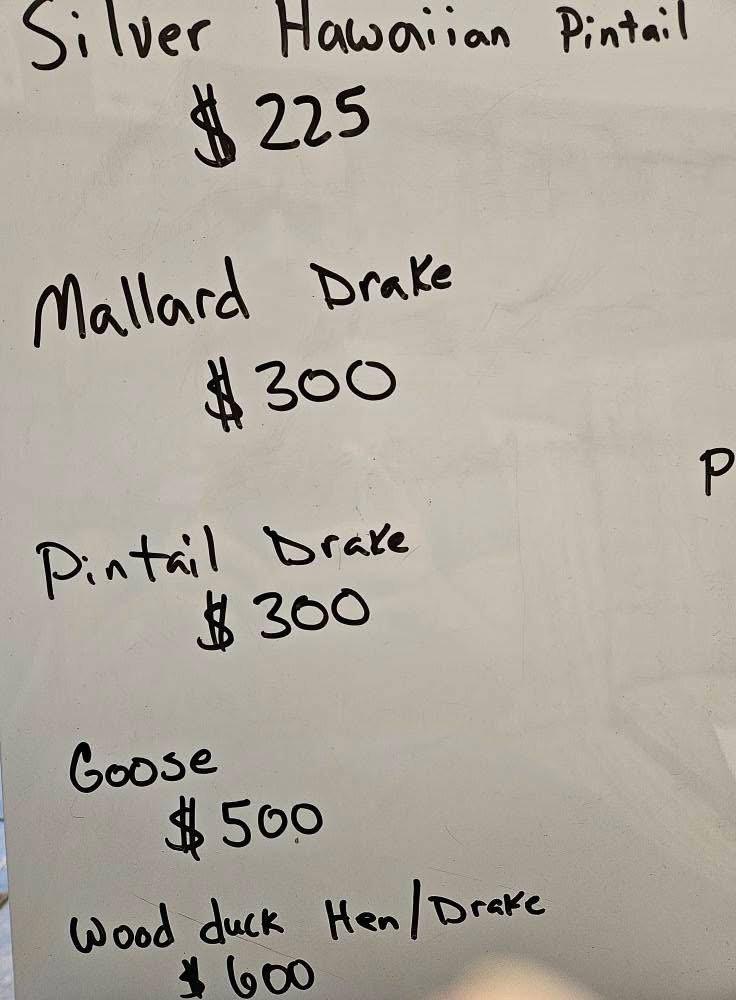 Silver Hawaiian Pintail
$225
Mallard Drake
$300
P
Pintail Drake
$300
Goose
$500
Wood duck Hen/Drake
$600